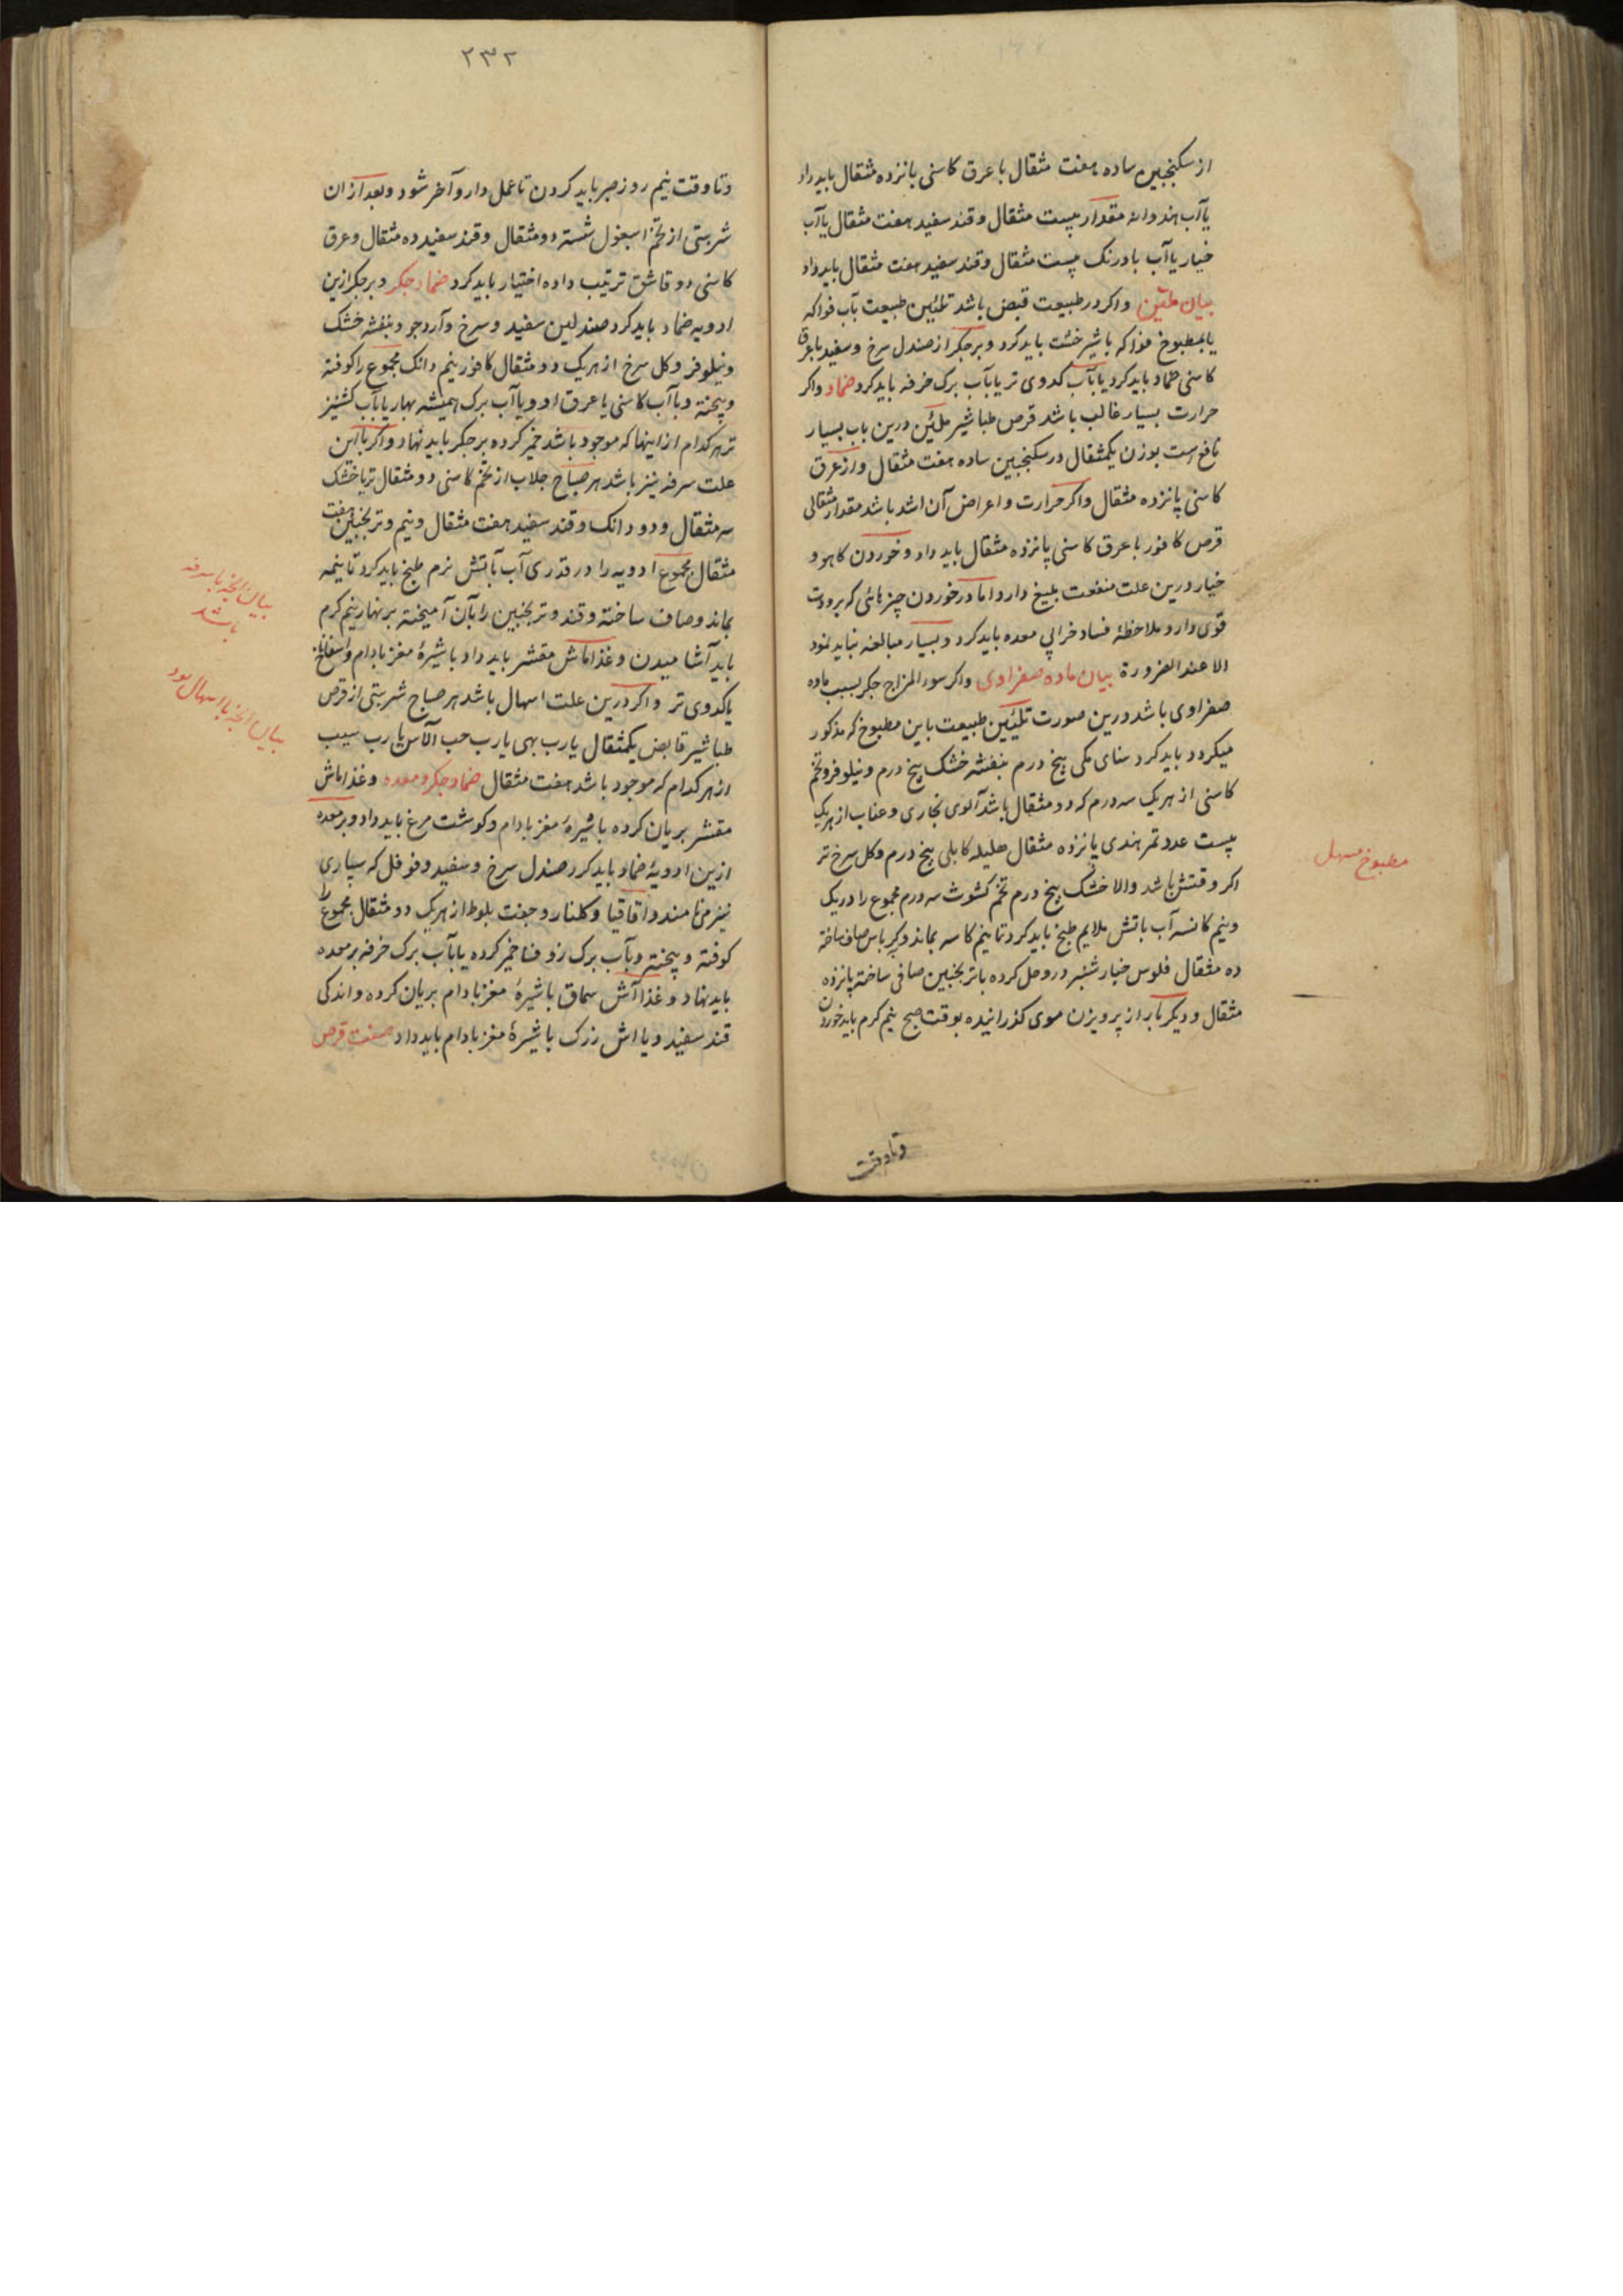 از سکنجبین ساده هفت مثقال با عرق کاسنی پانزده مثقال باید داد
یا آب هندوانه مقدار بیست مثقال و قند سفید هفت مثقال یا آب
خیار یا آب بادرنک بیست مثقال و قند سفید هفت مثقال باید داد
بیان ملیّن واکر در طبیعت قبض باشد تلئین طبیعت بآب فواکه
یا بمطبوخ فواکه با شیرخشت باید کرد و بر جکر از صندل سرخ و سفید با عرق
کاسنی ضماد باید کرد یا بآب کدوی تر یا بآب برک خرفه باید کرد ضماد واکر
حرارت بسیار غالب باشد قرص طباشیر ملئین درین باب بسیار
نافع است بوزن یکمثقال در سکنجبین ساده هفت مثقال و از عرق
کاسنی پانزده مثقال واکر حرارت و اعراض آن اشد باشد مقدار مثقالی
قرص کافور با عرق کاسنی پانزده مثقال باید داد و خوردن کاهو و
خیار درین علت منفعت بلیغ دارد اما در خوردن چیزهائی که برودت
قوی دارد ملاحظهٔ فساد خرابی معده باید کرد و بسیار مبالغه نباید نمود
الا عند الضرورة بیان ماده صفراوی واکر سوء المزاج جکر بسبب ماده
صفراوی باشد درین صورت تلئیین طبیعت باین مطبوخ که مذکور
میکردد باید کرد سنای مکی پنج درم بنفشه خشک پنج درم و نیلوفر و تخم
کاسنی از هر یک سه درم که دو مثقال باشد آلوی بخاری و عناب از هر یک
بیست عدد تمر هندی پانزده مثقال هلیله کابلی پنج درم و کل سرخ تر
اکر وقتش باشد والا خشک پنج درم تخم کشوث سه درم مجموع را در یک
و نیم کاسه آب باتش ملایم طبخ باید کرد تا نیم کاسه بماند و بکرباس صاف ساخته
ده مثقال فلوس خیار شنبر درو حل کرده با ترنجبین صافی ساخته پانزده
مثقال و دیکر بار از پرویزن موی کذرانیده بوقت صبح نیم کرم باید خوردن
وتا وقت
مطبوخ مسهل
۲۳۲
وتا وقت نیم روز صبر باید کردن تا عمل دارو آخر شود و بعد از ان
شربتی از تخم اسبغول شسته دو مثقال و قند سفید ده مثقال و عرق
کاسنی دو قاشق ترتیب داده اختیار باید کرد ضماد جکر و بر جکر ازین
ادویه ضماد باید کرد صندلین سفید و سرخ و آرد جو و بنفشه خشک
و نیلوفر و کل سرخ از هر یک دو مثقال کافور نیم دانک مجموع را کوفته
و بیخته و با آب کاسنی یا عرق او و یا آب برک همیشه بهار یا بآب کشنیز
تر هر کدام از اینها که موجود باشد خمیر کرده بر جکر باید نهاد واکر با این
علت سرفه نیز باشد هر صباح جلاب از تخم کاسنی دو مثقال تر یا خشک
سه مثقال و دو دانک و قند سفید هفت مثقال و نیم و ترنجبین هفت
مثقال مجموع ادویه را در قدری آب باتش نرم طبخ باید کرد تا نیمه
بماند و صاف ساخته و قند و ترنجبین را بآن آمیخته بر نهار نیم کرم
باید آشامیدن و غذا ماش مقشر باید داد با شیرهٔ مغز بادام و اسفاناخ
یا کدوی تر و اکر درین علت اسهال باشد هر صباح شربتی از قرص
طباشیر قابض یکمثقال یا رب بهی یا رب حب الآس یا رب سیب
از هر کدام که موجود باشد هفت مثقال ضماد جکر و معده و غذا ماش
مقشر بریان کرده با شیرهٔ مغز بادام و کوشت مرغ باید داد و بر معده
ازین ادویهٔ ضماد باید کرد صندل سرخ و سفید و فوفل که سپاری
نیز می نامند و اقاقیا و کلنار و جفت بلوط از هر یک دو مثقال مجموع را
کوفته و بیخته و بآب برک زوفا خمیر کرده یا بآب برک خرفه بر معده
باید نهاد و غذا آش سماق با شیرهٔ مغز بادام بریان کرده و اندکی
قند سفید و یا اش زرک با شیرهٔ مغز بادام باید داد صفت قرص
بیان انچه با سرفه
باشد
بیان انچه با اسهال بود